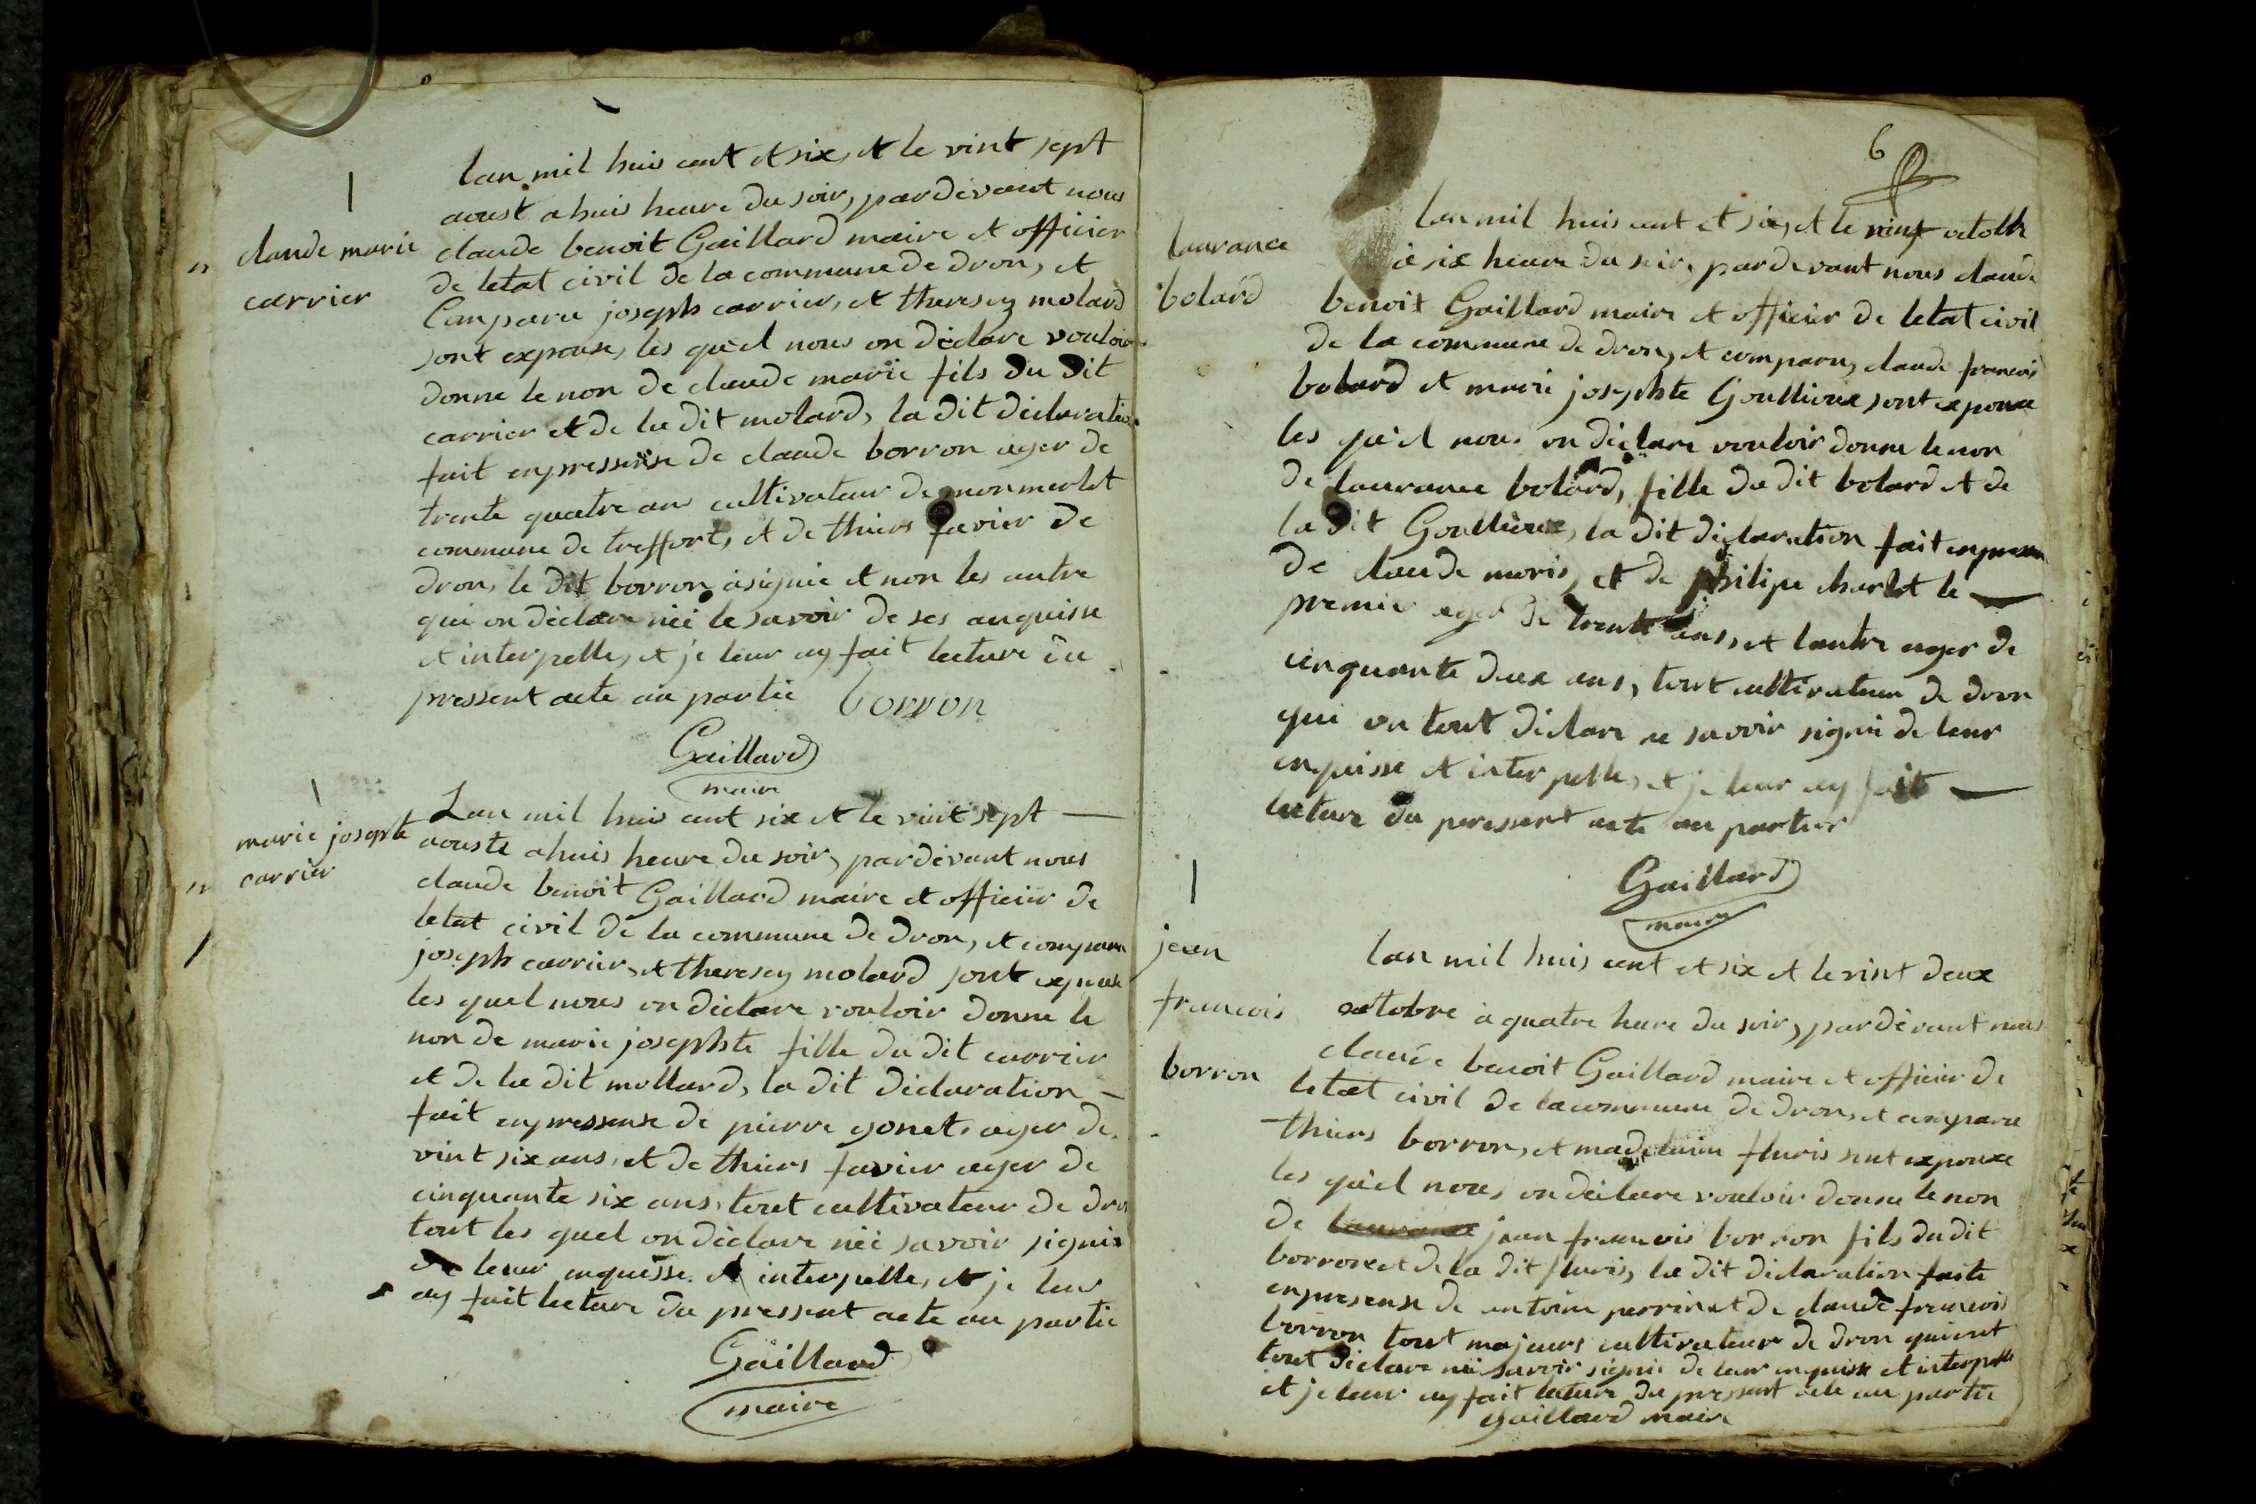 lan mil huis cent et six, et le vint sept
aoust a huis heure du soir, pardevant nous
claude marie
carrier
claude benoit Gaillard maire et officier
de letat civil de la commune de dron, et
Comparu joseph carrier, et theresez molard
sont expouse, les quel nous on déclare vouloir
donne le non de claude marie fils du dit
carrier et de la dit molard, la dit declaration
fait enpressense de claude borron ager de
trente quatre an cultivateur de monmerlet
commune de treffort, et de thiers favier de
dron, le dit borron àsignie et non les autre
qui on déclare néé le savoir de ses anquisse
et interpelle, et je leur ay fait lecture du
pressent acte au partie borron
Gaillard
maire
marie josephte
carrier
Lan mil huis cent six et le vint sept
aouste ahuis heure du soir, pardévant nous
claude benoit Gaillard maire et officier de
letat civil de la commune de dron, et comparu
joseph carrier, et theresez molard sont expouse
les quel nous on déclare vouloir donne le
non de marie josephte fille du dit carrier
et de la dit mollard, la dit déclaration
fait enpressense de pierre gonet, ager de
vint six ans, et de thiers favier ager de
cinquante six ans, tout cultivateur de dron
tout les quel on déclare néé savoir signie
de leur enquisse et interpelle, et je leur
ay fait lecture du pressent acte au partie
Gaillard
maire
6
laurance
bolard
lan mil huis cent et six, et le octobre
à six heure du soir, pardevant nous claude
benoit Gaillard maire et officier de letat civil
de la commune de dron, et comparu, claude francois
bolard et marie josephte Goullioux sont expouse
les quel nous on déclare vouloir donne le non
de laurance bolard, fille du dit bolard et de
la dit Goullioux, la dit déclaration fait enpressense
de claude moris, et de philipe charlot le
premie ager de trente ans, et lautre ager de
cinquante deux ans, tout cultivateur de dron
qui on tout déclare ne savoir signie de leur
enquisse et interpelle, et je leur ay fait
lecture du pressent acte au partier
Gaillard
maire
jean
francois
borron
lan mil huis cent et six et le vint deux
octobre à quatre heure du soir, pardévant nous
claude benoit Gaillard maire et officier de
letat civil de la commune de dron, et comparu
thiers borron, et madelaine fluris sont expouxe
les quel nous on déclare vouloir donne le non
de laurance jean francois borron fils du dit
borron et de la dit fluris, la dit déclaration faite
enpresense de antoine perrin et de claude francois
borron tout majeurs cultivateur de dron qui ont
tout déclare néé savoir signie de leur enquisse et interpelle
et je leur ay fait lecture du pressent acte au partie
Gaillard maire